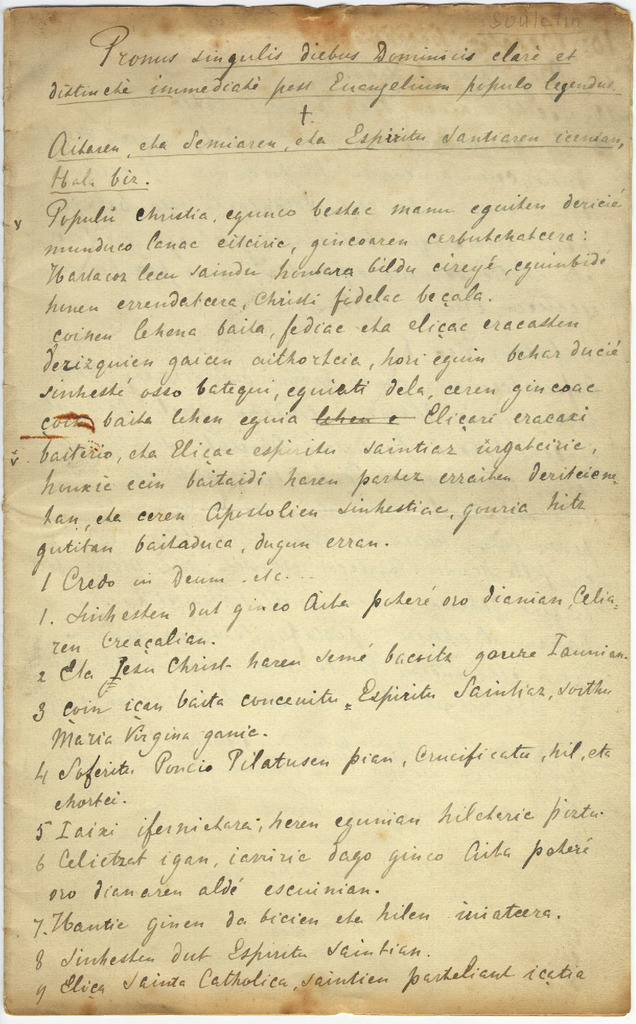 Souletin
Pronus singulis diebus Dominicis clarè et
distinctè immediatè post Euangelium populo legendus
†
Aitaren, eta Semiaren, eta Espiritu Santiaren icenian,
Hala biz.
Populü christia, egunco bestac manu eguiten dericié
munduco lanac eitciric, gincoaren cerbutchatcera:
Hartacoz lecu saindu hontara bildu cireyé, eguinbide
honen errendatcera, Christi fidelac beçala.
coinen lehena baita, fediac eta eliçac eracasten
derizquien gaicen aithortcia, hori eguin behar ducié
sinhesté osso batequi, eguiati dela, ceren gincoac
baita lehen eguia lehen e Eliçari eracaxi
baiterio, eta Eliçac espiritu saintiaz ürgatciric,
houxic ecin baitaidi haren partez erraiten deritcien-
tan, eta ceren Apostolien sinhestiac, gouria hitz
gutitan baitaduca, dugun erran.
1 Credo in Deum . etc...
1. Sinhesten dut ginco Aita potheré oro dianian, Celia-
ren Creaçalian.
2 Eta Jesu Christ haren semé bacoitz goure Iaunian.
3 coin içan baita concevitu Espiritu Saintiaz, sorthu
Maria Virgina ganic.
4 Sofritu Poncio Pilatusen pian, Crucificatu, hil, eta
ehortci.
5 Iaixi ifernietara, heren egunian hilcteric piztu.
6 Celietzat igan, iarriric dago ginco Aita potheré
oro dianaren aldé escuinian.
7. Hantic ginen da bicien eta hilen iuiatcera.
8 Sinhesten dut Espiritu Saintian.
9 Eliça Sainta Catholica, saintien partaliant içatia